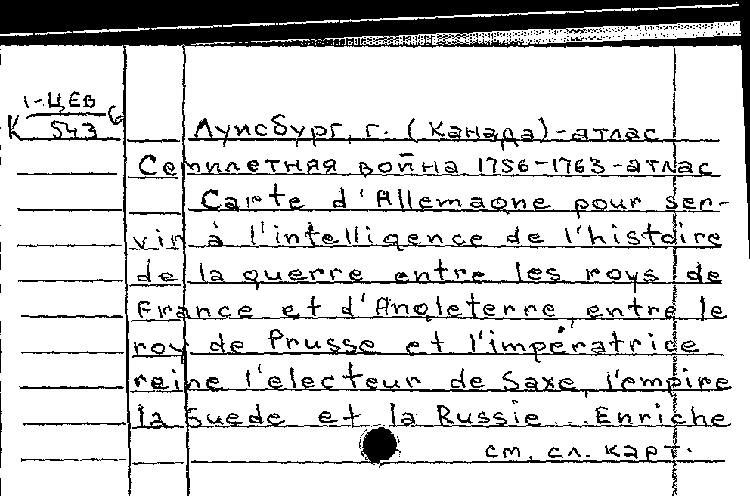 1-ЦЕВ
К 543 6
Луисбург, г. (Канада)-атлас
Семилетняя война 1756-1763-атлас
Carte d'Allemagne pour ser-
vir à l'intelligence de l'histoire
de la guerre entre les roys de
France et d'Angleterre, entre le
roy de Prusse et l'impératrice
reine l'electeur de Saxe, l'empire
la Suede et la Russie... Enriche
см. сл. карт.